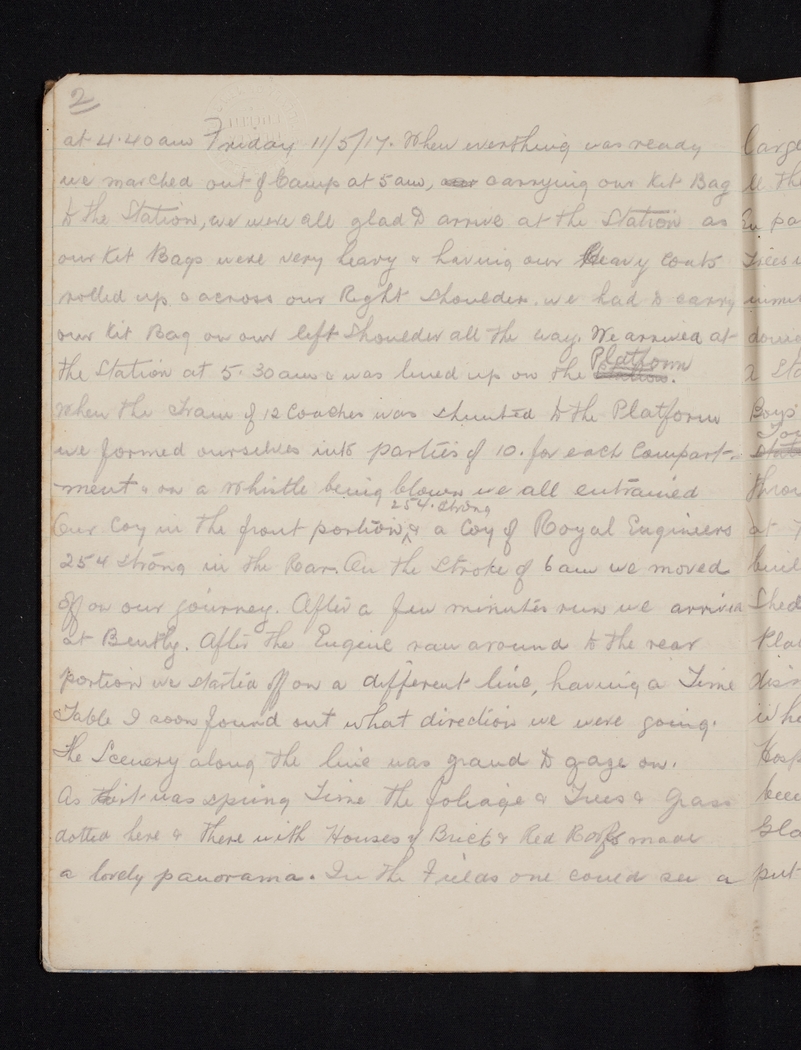 2
at 4.40am Friday 11/5/17. When everthing was ready
we marched out of Camp at 5am, carrying our Kit Bag
to the Station, we were all glad to arrive at the Station as
our Kit Bags were very heavy & having our Heavy Coats
rolled up & across our Right shoulder. we had to carry
our Kit Bag on our left shoulder all the way. We arrived at
Platform
the Station at 5.30am & was lined up on the Station.
When the Train of 12 Coaches was shunted to the Platform
we formed ourselves into parties of 10. for each Compart-
ment & on a whistle being blown we all entrained
254. Strong
Our Coy in the front portion, & a Coy of Royal Engineers
254 strong in the Rear. On the Stroke of 6am we moved
off on our journey. After a few minutes run we arrived
at Bently. After the Engine ran around to the rear
portion we started off on a different line, having a Time
Table I soon found out what direction we were going.
The Scenery along the line was grand to gaze on.
As it was spring Time the foliage & Trees & Grass
dotted here & there with Houses of Brick & Red Roofs made
a lovely panorama. In the Fields one could see a
large
trees
down
Boys
throu
at
Shed
Plat
Hosp
been
put